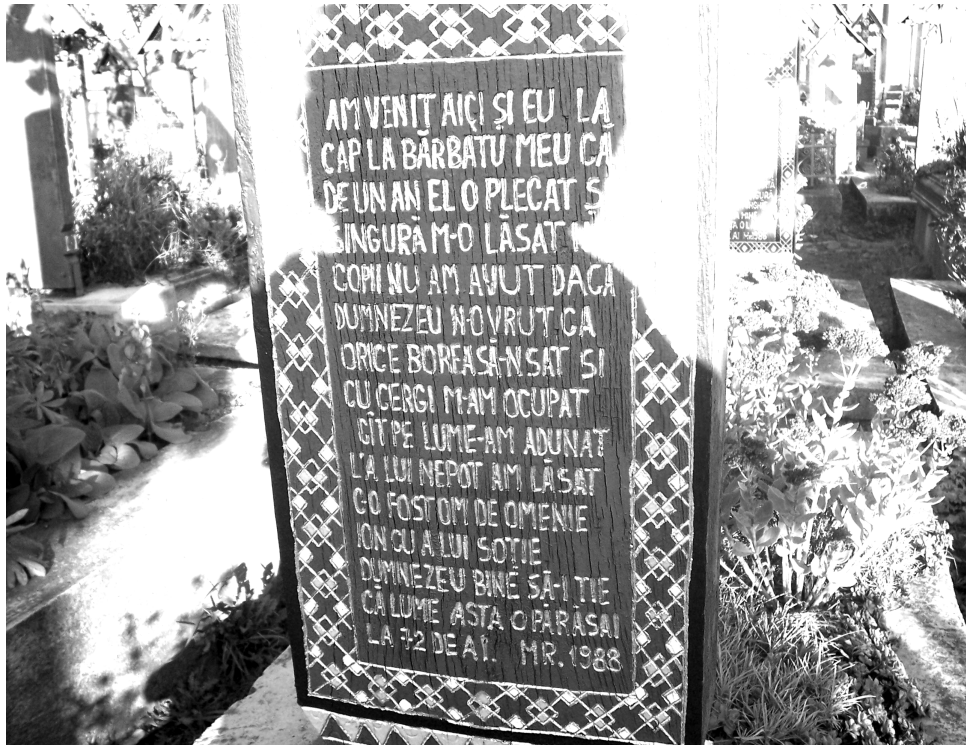 AM VENIT AICI ȘI EU LA
CAP LA BĂRBATU MEU CĂ
DE UN AN EL O PLECAT Ș
SINGURĂ M-O LĂSAT
COPII NU AM AVUT DACĂ
DUMNEZEU N-O VRUT CA
ORICE BOREASĂ-N SAT ȘI
CU CERGI M-AM OCUPAT
CÎT PE LUME-AM ADUNAT
L'A LUI NEPOT AM LĂSAT
C-O FOST OM DE OMENIE
ION CU A LUI SOȚIE
DUMNEZEU BINE SĂ-I ȚIE
CĂ LUME ASTA O PĂRĂSAI
LA 72 DE AI. MR. 1988